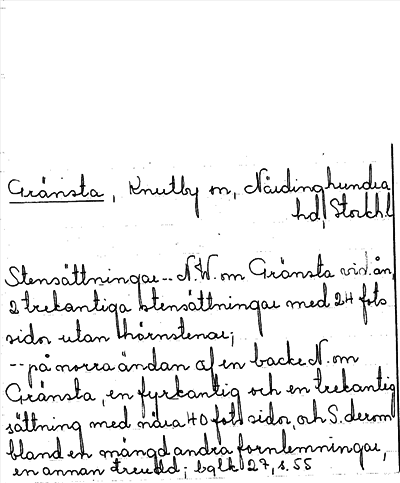 Gränsta, Knutby sn, Närdinghundra
hd, Stockhl
Stensättningar -- N.W. om Gränsta vid ån,
2 trekantiga stensättningar med 24 fots
sidor utan hörnstenar;
-- på norra ändan af en backe N. om
Gränsta, en fyrkantig och en trekantig
sättning med nära 40 fots sidor, och S. derom
bland en mängd andra fornlemningar,
en annan treudd; bglk 27, s. 55